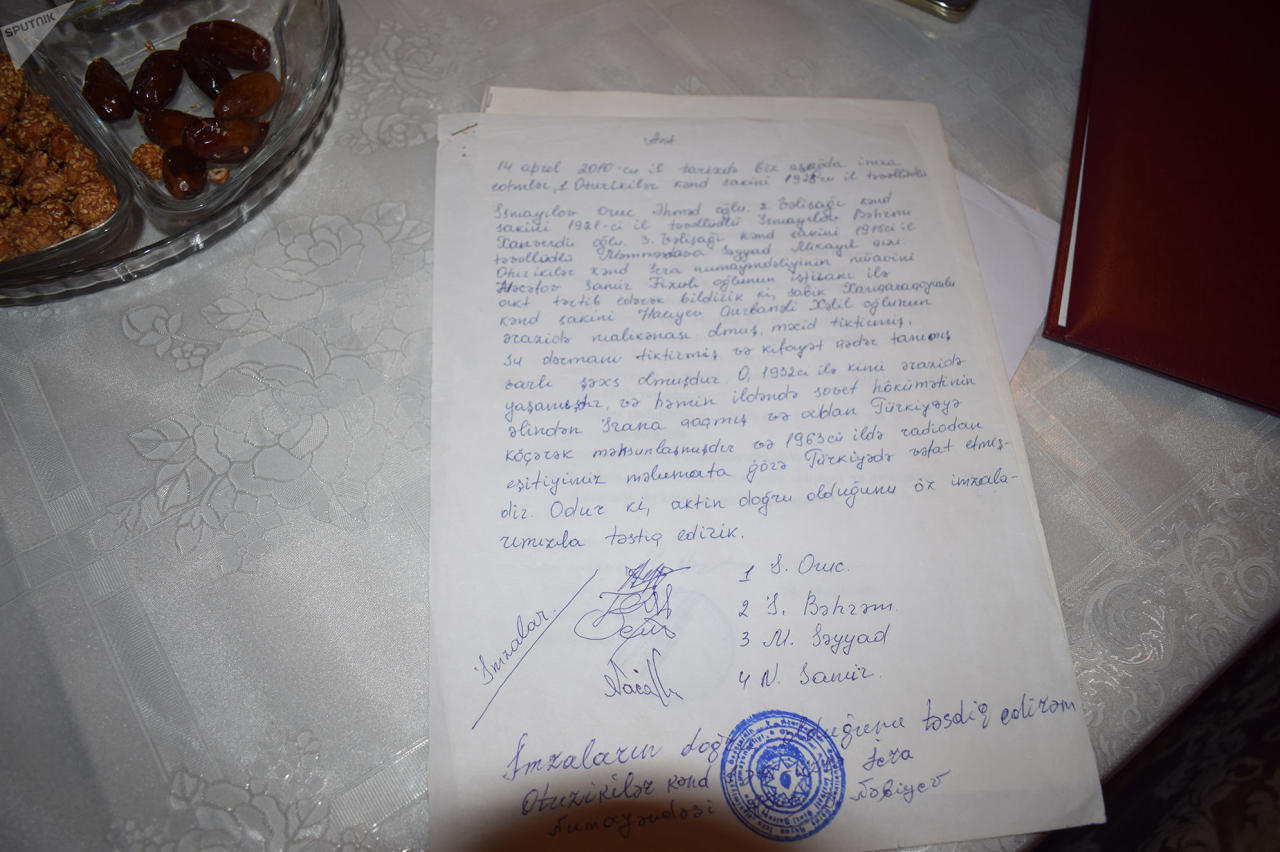 SPUTNIK
Akt
14 aprel 2010-cu il tarixdə biz aşağıda imza
edənlər, 1. Otuzikilər kənd sakini 1925-cu il təvəllüdlü
İsmayılov Oruc Əhməd oğlu. 2. Vəlisağı kənd
sakini 1921-ci il təvəllüdlü İsmayılov Bəhrəm
Xanverdi oğlu. 3. Vəlisağı kənd sakini 1915ci il
təvəllüdlü Məmmədova Səyyad Mikayıl qızı.
Otuzikilər kənd İcra numayəndəliyinin müavini
Nəcəfov Samir oğlunun iştirakı ilə
akt tərtib edərək bildiririk ki, sabik Xanqaraqoyunlu
kənd sakini Hacıyev Qurbandi Xəlil oğlunun
ərazidə malikənası olmuş, məcid tiktirmiş,
su dərmanı tiktirmiş və kifayət qədər tanımış
varlı şəxs olmuşdur. O, 1932ci ilə kimi ərazidə
yaşamışdır, və həmin ildəndə sovet hökümətinin
əlindən İrana qaçmış və ordan Türkiyəyə
köçərək məhsunlaşmışdır və 1963cü ildə radiodan
eşitiyimiz məlumata görə Türkiyədə vəfat etmiş-
dir. Odur ki, aktin doğru olduğunu öz imzala-
rımızla təstiq edirik.
İmzalar.
1 İ. Oruc.
2 İ. Bəhrəm.
3 M. Səyyad
4 N. Samir.
İmzaların doğru olduğunu təsdiq edirəm
Otuzikilər kənd İcra
Numayəndəsi Nəbiyev